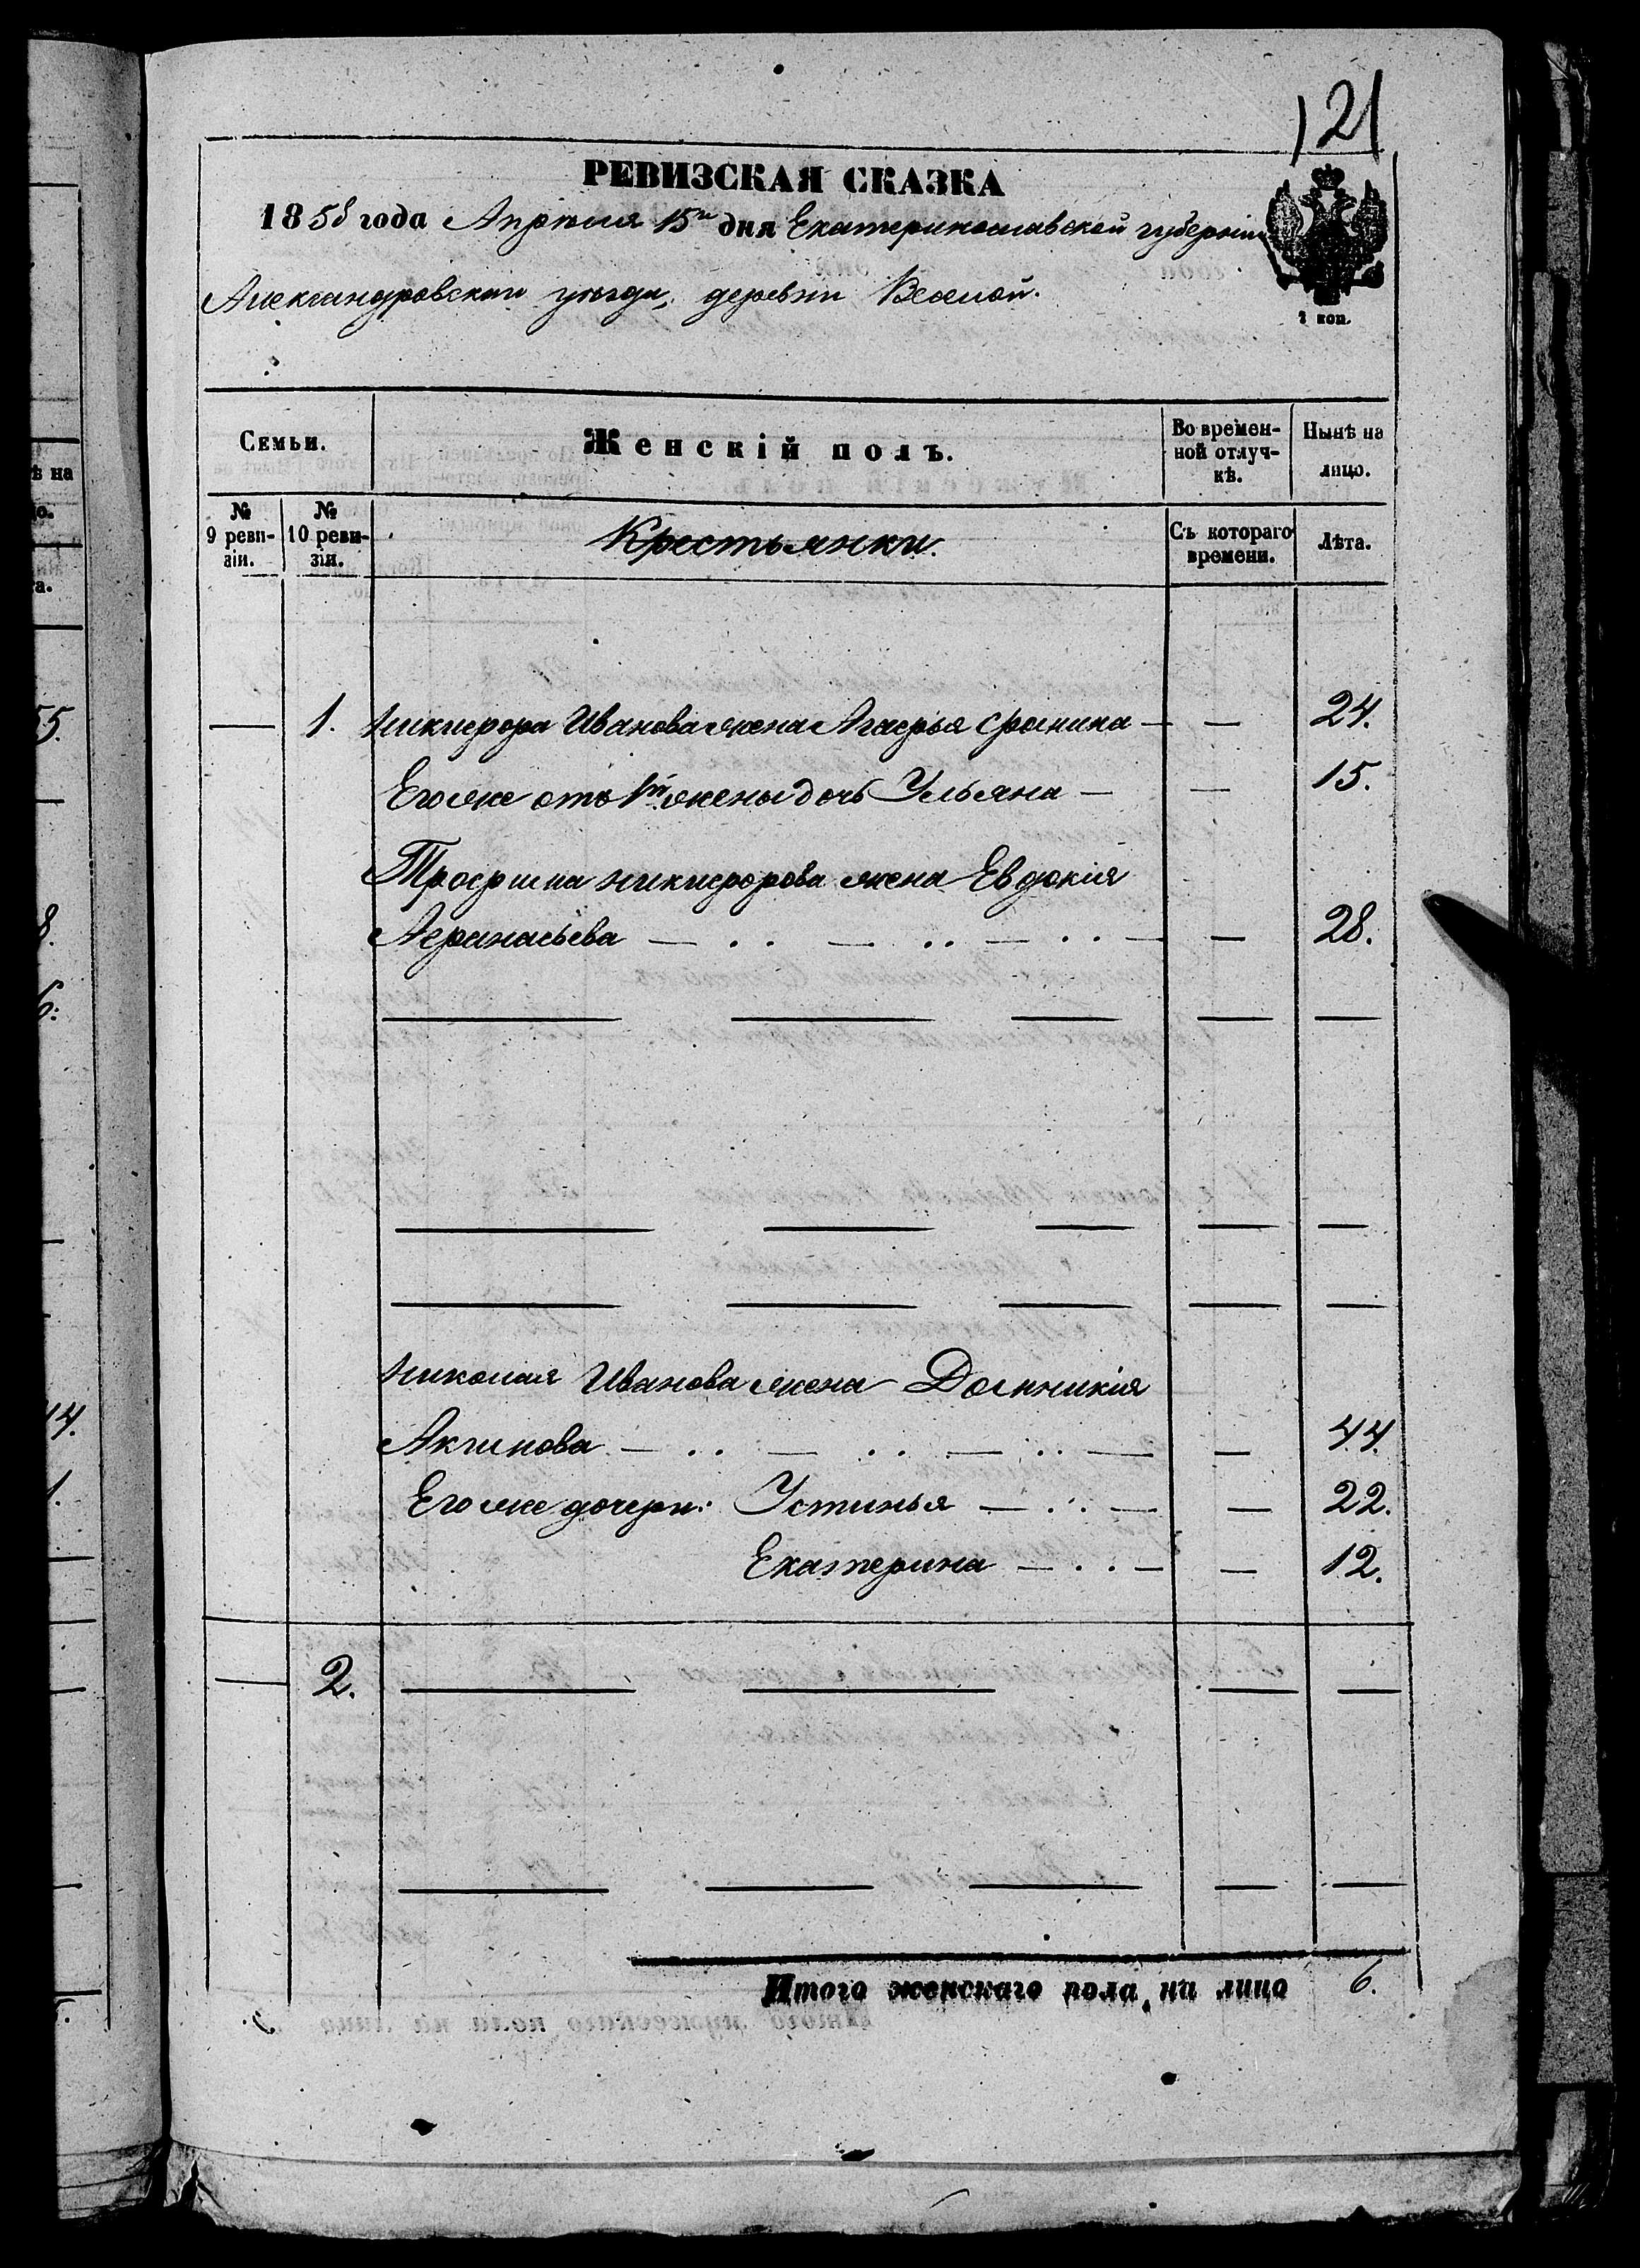 121
РЕВИЗСКАЯ СКАЗКА
1858 года Апрѣля 15го дня Екатеринославской губерніи
Александровскаго уѣзда, деревни Веселой.
2 коп.
Семьи. Женскій полъ. Во времен-ной отлуч-кѣ. Нынѣ на лицо.
№ 9 реви-зіи. № 10 реви-зіи. Крестьянки. Съ котораго времени. Лѣта.
— 1. Никифора Иванова жена Агафья Фомина — — 24.
Его же отъ 1й жены дочь Ульяна — — 15.
Трофима Никифорова жена Евдокія
Афанасьева — . . — . . — . . — — 28.
Николая Иванова жена Домникія
Акимова — . . — . . — . . — — 44.
Его же дочери: Устинья — . . — — 22.
Екатерина — . . — — 12.
— 2. — — — —
Итого женскаго пола, на лицо 6.